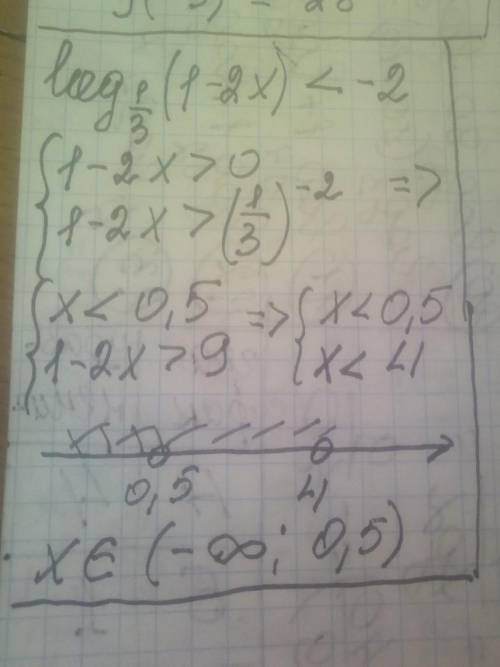 log_{1/3}(1-2x) < -2
{1-2x > 0
{1-2x > (1/3)^{-2} =>
{x < 0,5 => {x < 0,5
{1-2x > 9 {x < 4
0,5 4
x ∈ (-∞; 0,5)